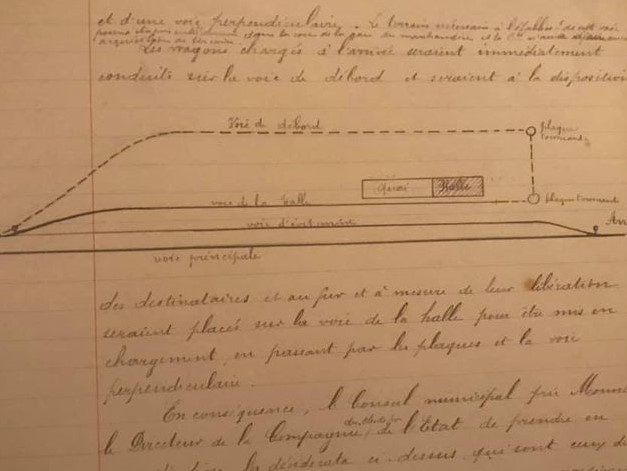 et d'une voie perpendiculaire. Le terrain nécessaire à l'établis' de cette voie
Les wagons chargés à l'arrivée seraient immédiatement
conduits sur la voie de débord et seraient à la disposition
Voie de débord
plaque
tournante
Quai
Halle
voie de la halle
plaque tournant
voie d'évitement
voie principale
des destinataires et au fur et à mesure de leur libération
seraient placés sur la voie de la halle pour être mis en
chargement en passant par les plaques et la voie
perpendiculaire.
En conséquence, le Conseil municipal prie
le Directeur de la Compagnie de l'Etat de prendre en
la désidérata ci-dessus qui sont ceux